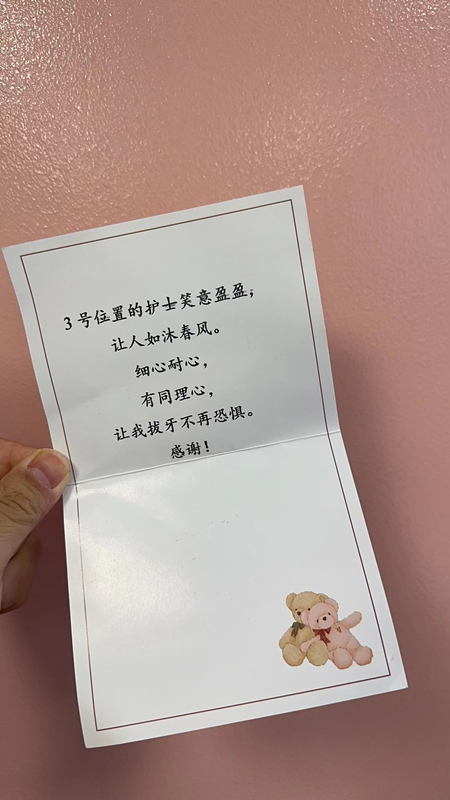 3号位置的护士笑意盈盈；
让人如沐春风。
细心耐心，
有同理心，
让我拔牙不再恐惧。
感谢！